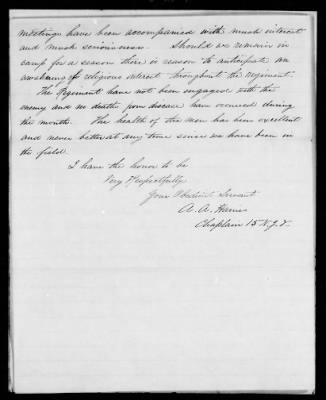 meetings have been accompanied with much interest
and much seriousness. Should we remain in
camp for a season there is reason to anticipate an
awakening of religious interest throughout the regiment.
The Regiment have not been engaged with the
enemy and no deaths from disease have occurred during
the month. The health of the men has been excellent
and never better at any time since we have been in
the field.
I have the honor to be
Very Respectfully
Your Obedient Servant
A. A. Haines
Chaplain 15 N.J.V.